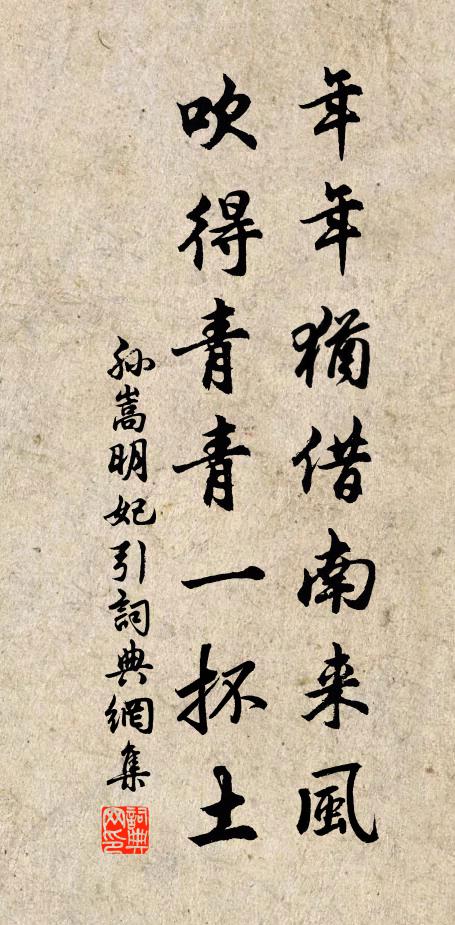 年年猶借南来風
吹得青青一抔土
孙嵩明妃引詞典網集
詞典网印